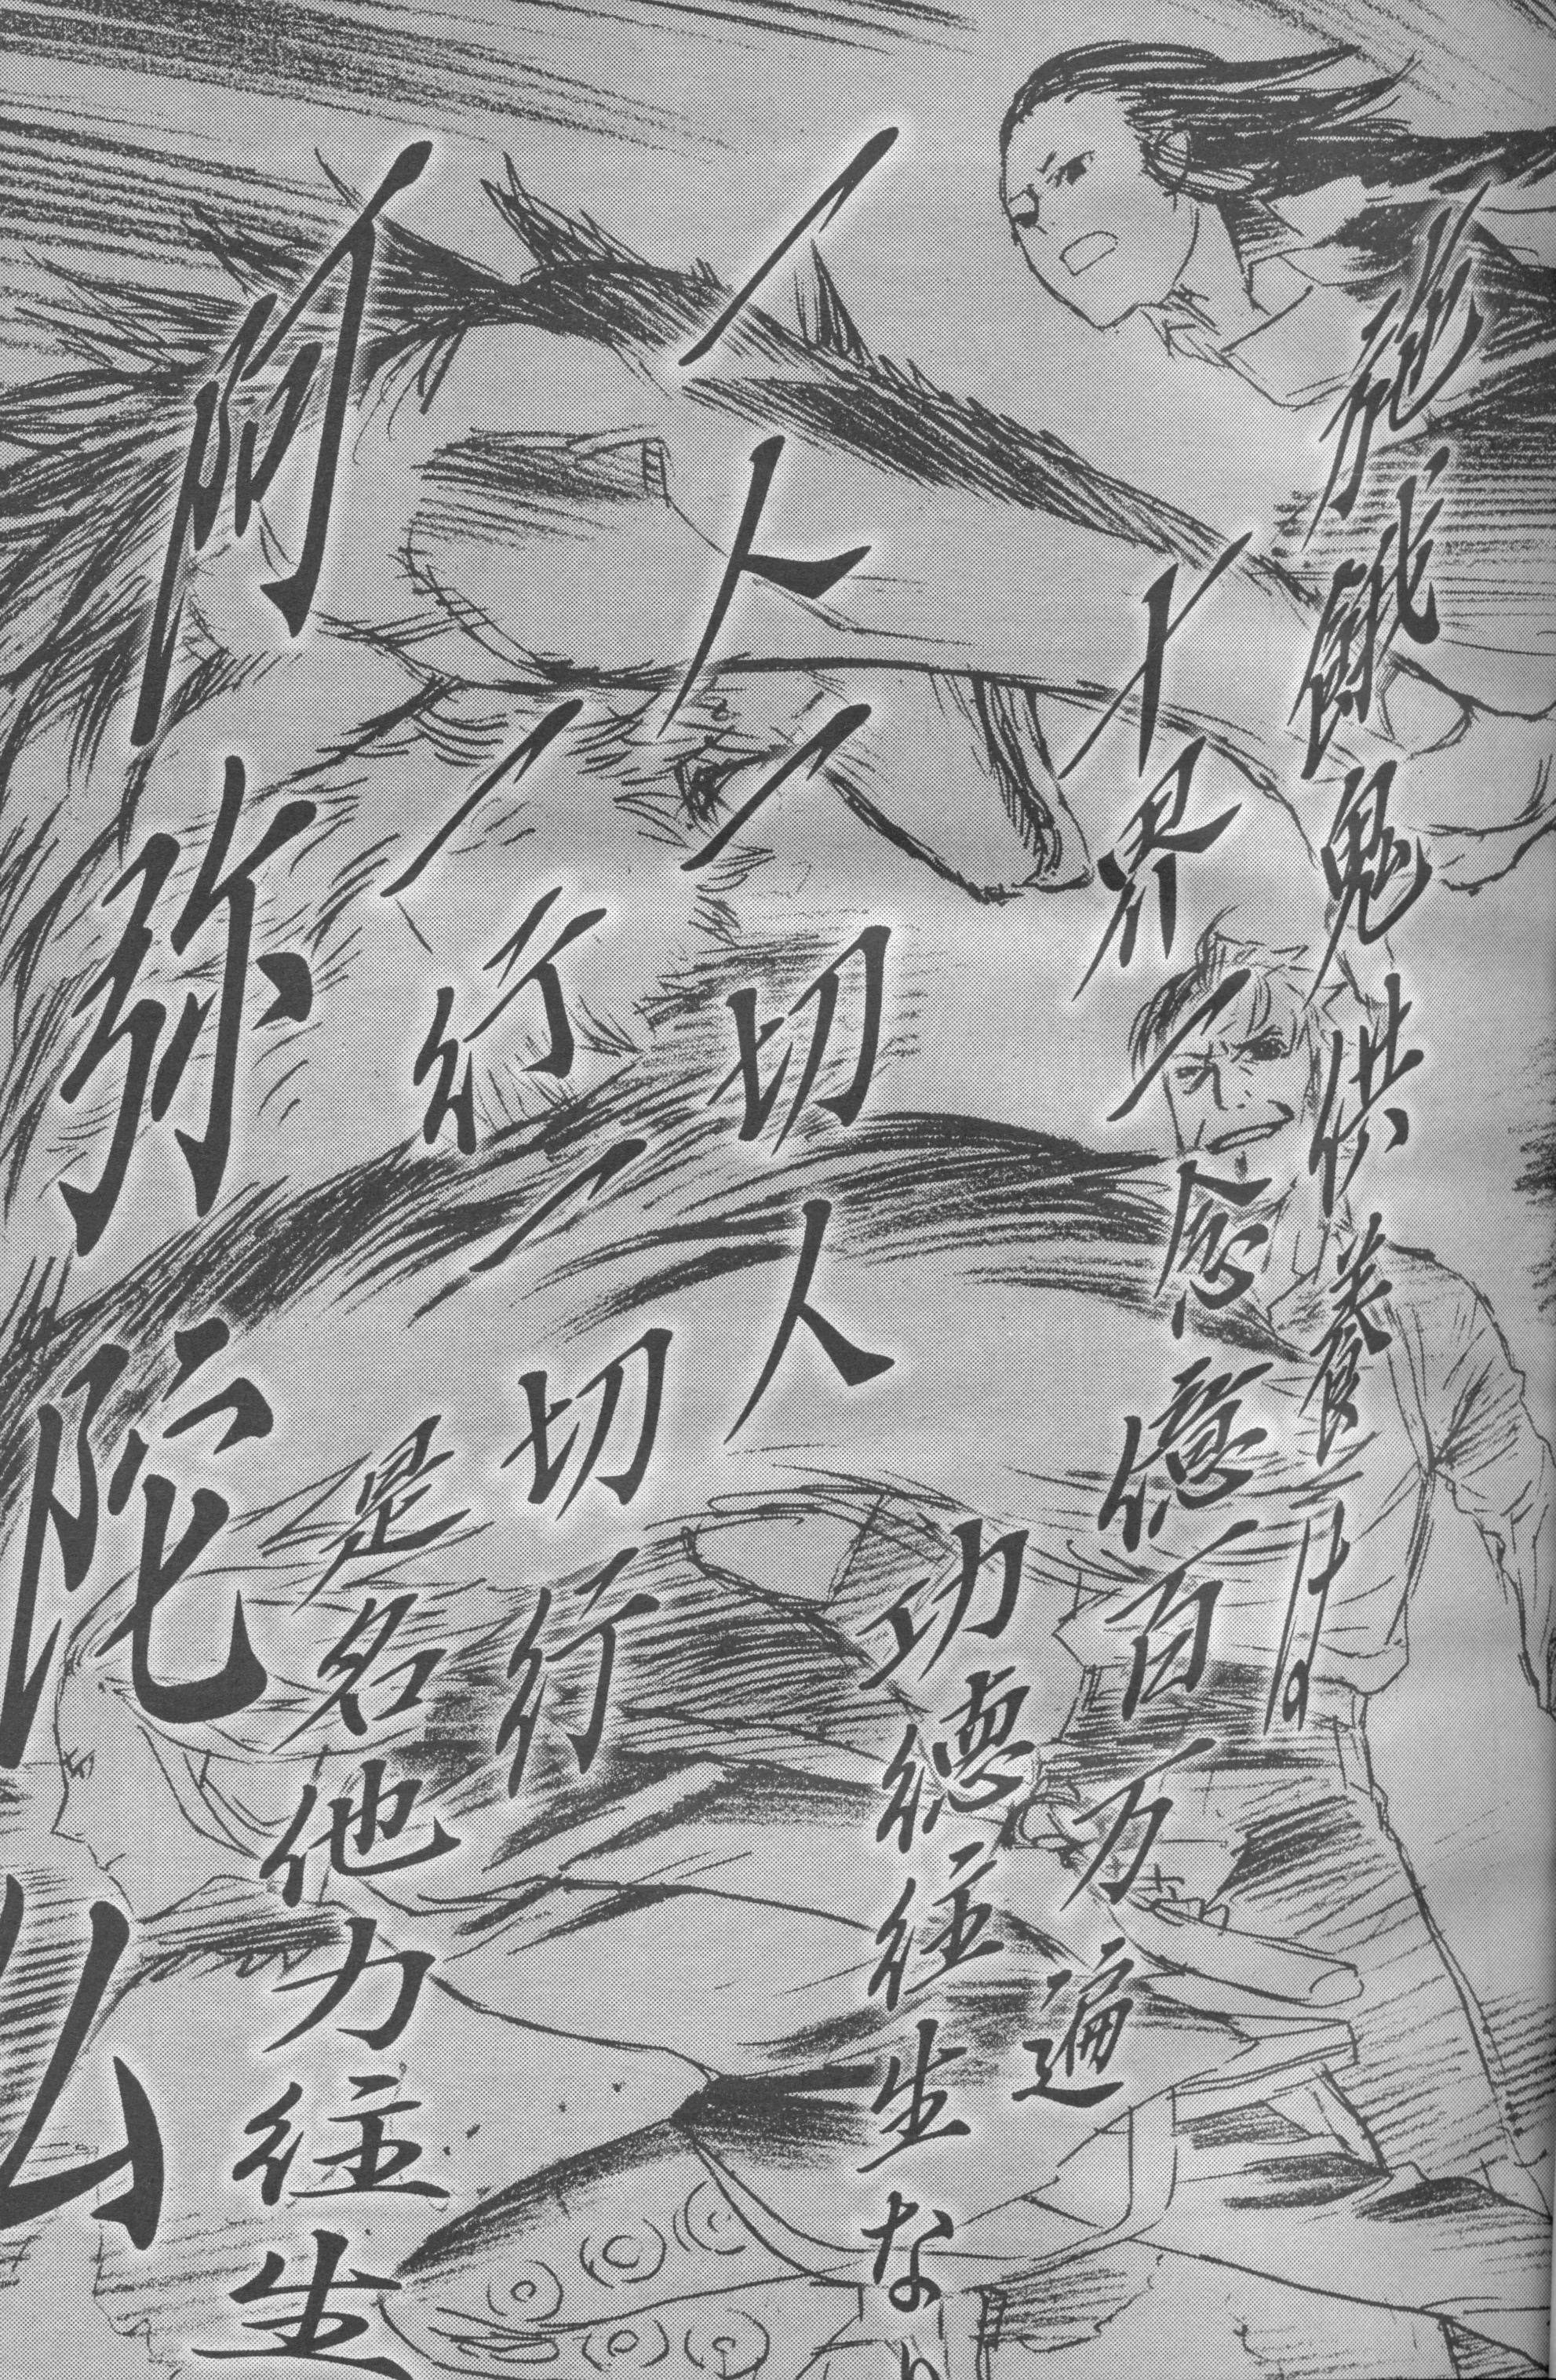 施餓鬼供養は
十界一念億百万遍
功徳往生なり
一人一切人
一行一切行
是名他力往生
阿弥陀仏